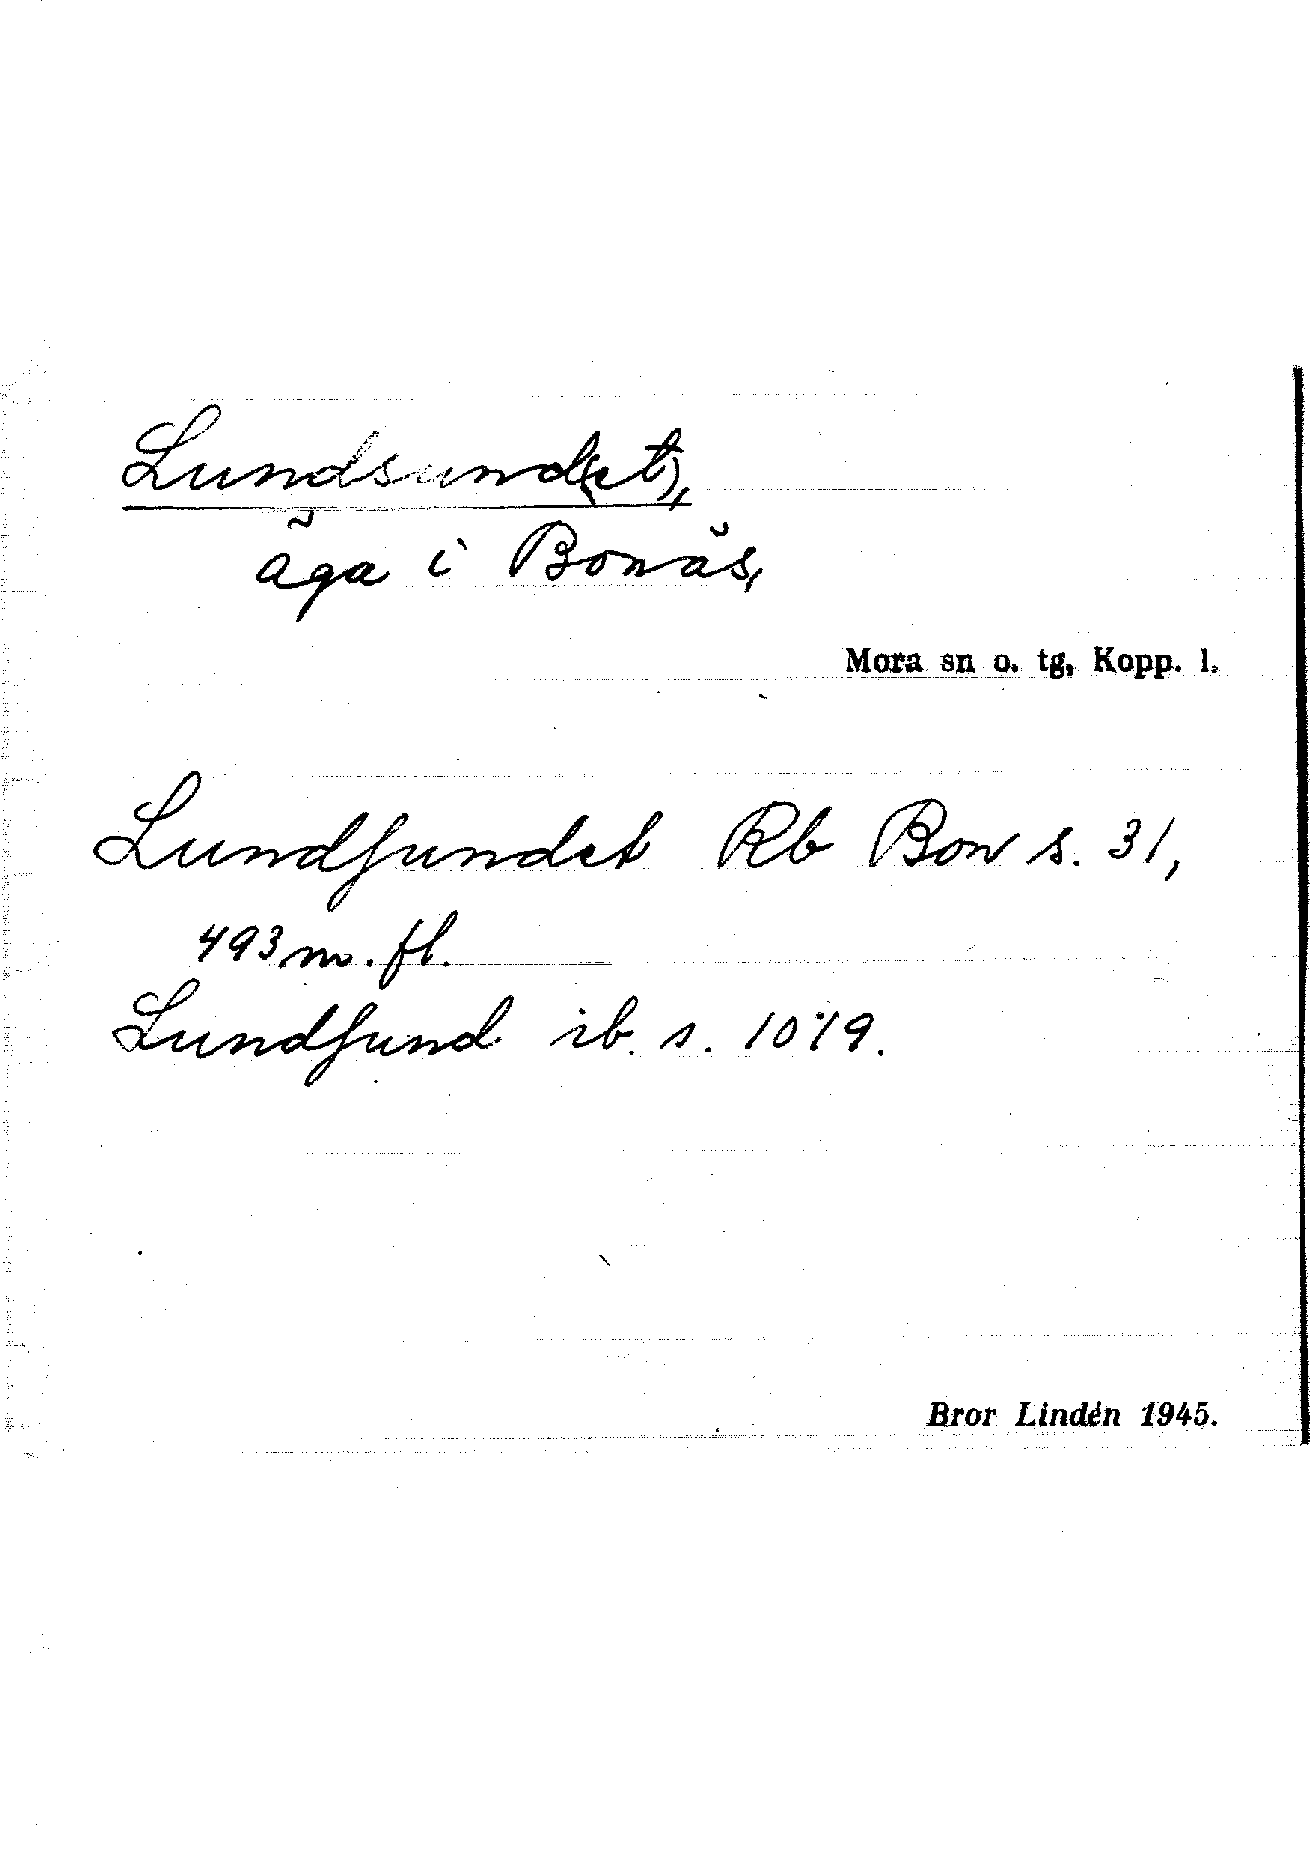 Lundsund(et),
äga i Bonäs,
Mora sn o. tg, Kopp. l.
Lundſundet Rb Bon s. 31,
493 m. fl.
Lundſund ib. s. 1019.
Bror Lindén 1945.